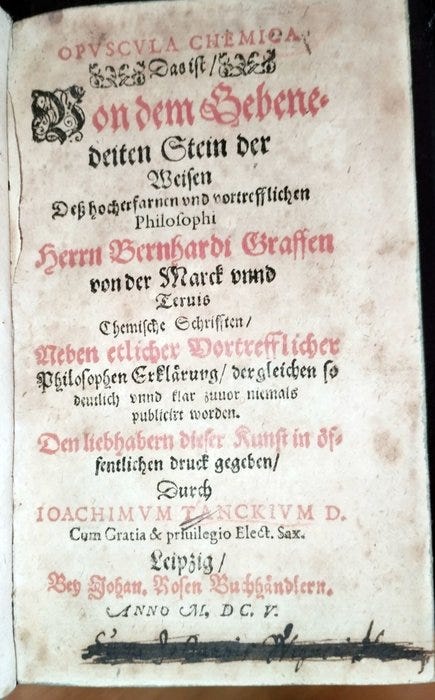 OPVSCVLA CHEMICA
Das ist /
Von dem Gebene-
deiten Stein der
Weisen
Deß hocherfarnen vnd vortrefflichen
Philosophi
Herrn Bernhardi Graffen
von der Marck vnnd
Teruis
Chemische Schrifften /
Neben etlicher Vortrefflicher
Philosophen Erklärung / dergleichen so
deutlich vnnd klar zuuor niemals
publicirt worden.
Den liebhabern dieser Kunst in öf-
fentlichen druck gegeben /
Durch
IOACHIMVM TANCKIVM D.
Cum Gratia & priuilegio Elect. Sax.
Leipzig /
Bey Johan. Rosen Buchhändlern.
ANNO M. DC V.